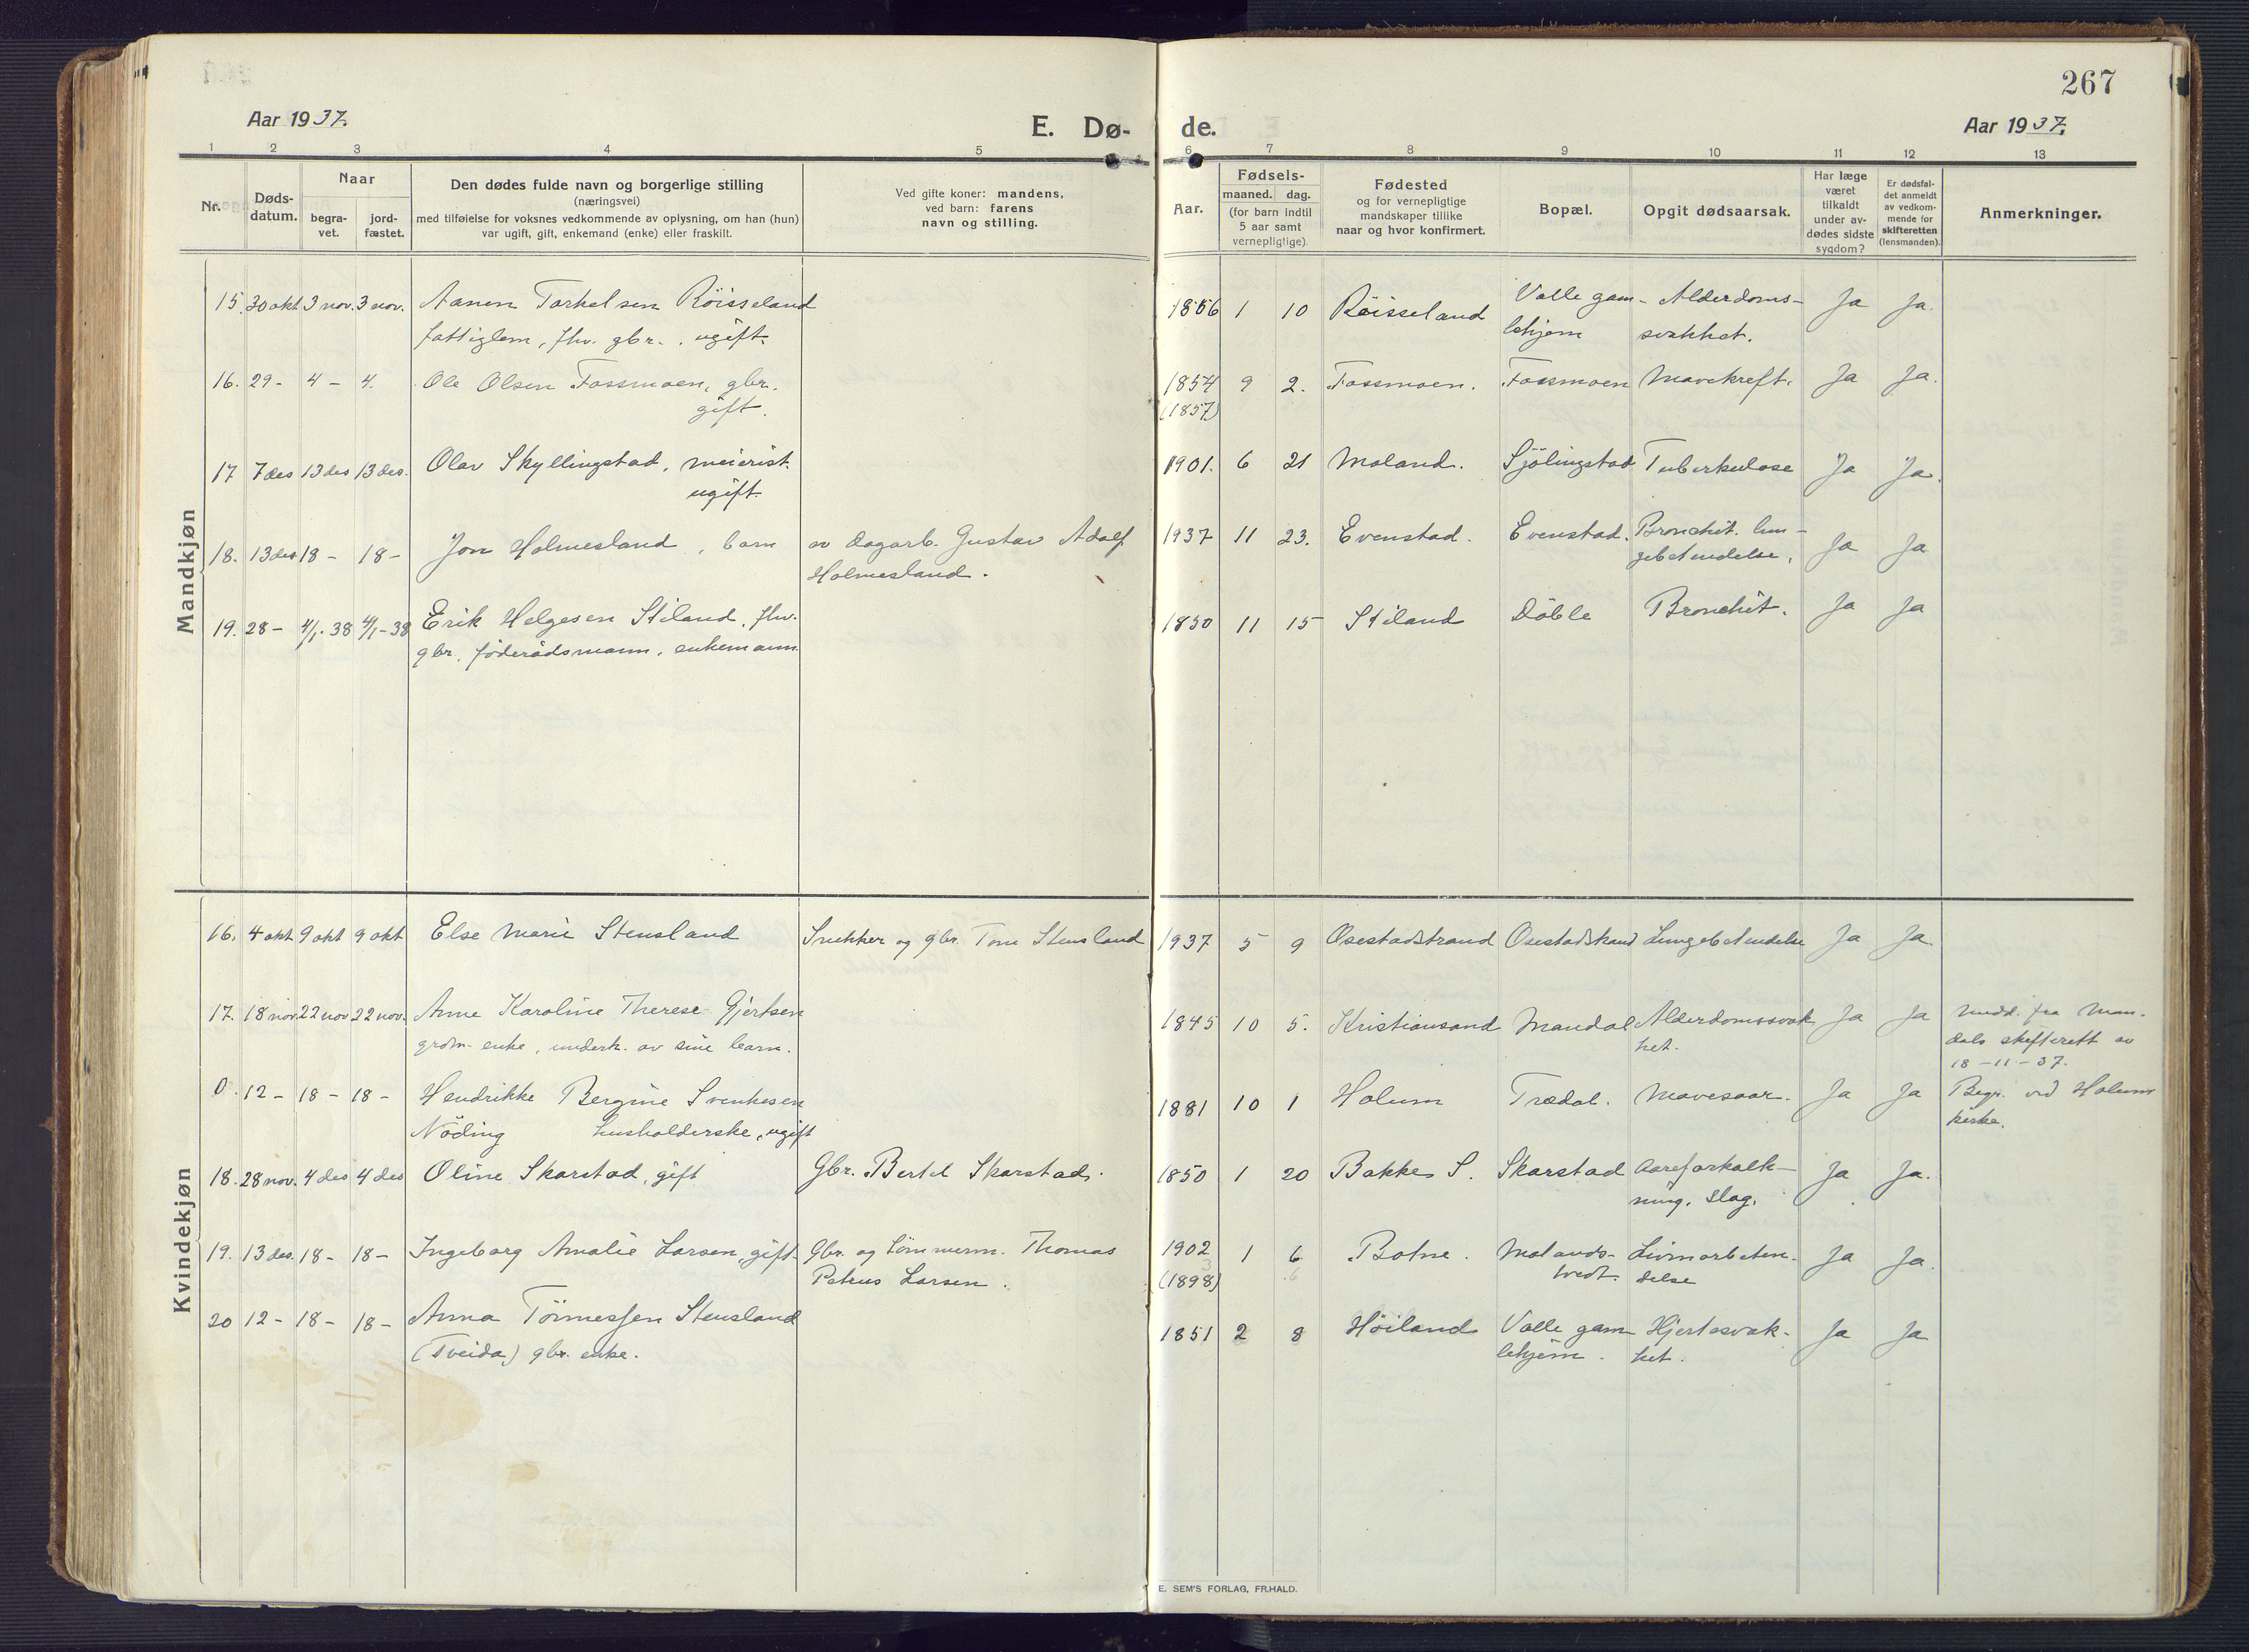 267
Aar 1937.
E. Dø-
de.
Aar 1937.
1 2 3 4 5 6 7 8 9 10 11 12 13
Nr.
Døds-
datum.
Naar
begra-
vet.
jord-
fæstet.
Den dødes fulde navn og borgerlige stilling
(næringsvei)
med tilføielse for voksnes vedkommende av oplysning, om han (hun)
var ugift, gift, enkemand (enke) eller fraskilt.
Ved gifte koner: mandens,
ved barn: farens
navn og stilling.
Aar.
Fødsels-
maaned. dag.
(for barn indtil
5 aar samt
vernepligtige)
Fødested
og for vernepligtige
mandskaper tillike
naar og hvor konfirmert.
Bopæl.
Opgit dødsaarsak.
Har læge
været
tilkaldt
under av-
dødes sidste
sygdom?
Er dødsfal-
det anmeldt
av vedkom-
mende for
skifteretten
(lensmanden).
Anmerkninger.
Mandkjøn
15. 30 okt 3 nov. 3 nov. Aanen Tarkelsen Röisseland 1866 1 10 Röisseland Valle gam- Alderdoms- Ja Ja.
fattiglem, fhv. gbr., ugift. lehjem svakhet.
16. 29- 4- 4. Ole Olsen Fossmoen, gbr. 1854 9 2. Fossmoen. Fossmoen Mavekreft. Ja Ja.
gift. (1857)
17 7 des 13 des 13 des. Olav Skyllingstad, meierist. 1901. 6 21 Moland. Sjölingstad Tuberkulose Ja Ja.
ugift.
18. 13 des 18- 18- Jon Holmesland, barn av dagarb. Gustav Adolf 1937 11 23. Evenstad. Evenstad. Bronchit. lun- Ja Ja
Holmesland. gebetendelse.
19. 28- 4/1-38 4/1-38 Erik Helgesen Stiland, fhv. 1850 11 15 Stiland Döble Bronchit. Ja Ja
gbr., föderådsmann, enkemann.
Kvindekjøn
16. 4 okt 9 okt 9 okt Else Marie Stensland Snekker og gbr. Tom Stensland 1937 5 9 Osestadstrand Osestadstrand Lungebetendelse Ja Ja.
17. 18 nov. 22 nov 22 nov. Anne Karoline Therese Gjertsen 1845 10 5. Kristiansand Mandal Alderdomssvak Ja Ja Medd. fra Man-
enke, underh. av sine barn. het. dals skifterett av
18-11-37.
0. 12- 18- 18- Hendrikke Bergine Svenkesen 1881 10 1 Holum Trædal. Mavesaar. Ja Ja Begr. ved Holum
Nöding husholderske, ugift kirke.
18. 28 nov. 4 des 4 des Oline Skarstad, gift Gbr. Bertel Skarstad. 1850 1 20 Bakke S. Skarstad Aareforkalk- Ja Ja.
ning. Slag.
19. 13 des. 18- 18- Ingeborg Amalie Larsen, gift. Gbr. og tömmerm. Thomas 1902 1 6 Botne. Molands- Livmorbeten- Ja Ja.
Petrus Larsen. (1898) tvedt. delse
20 12- 18- 18- Anna Tönnessen Stensland 1851 2 8 Höiland Valle gam Hjertesvak- Ja Ja
(Tveida) gbr. enke. lehjem. het.
E. SEM'S FORLAG, FR.HALD.